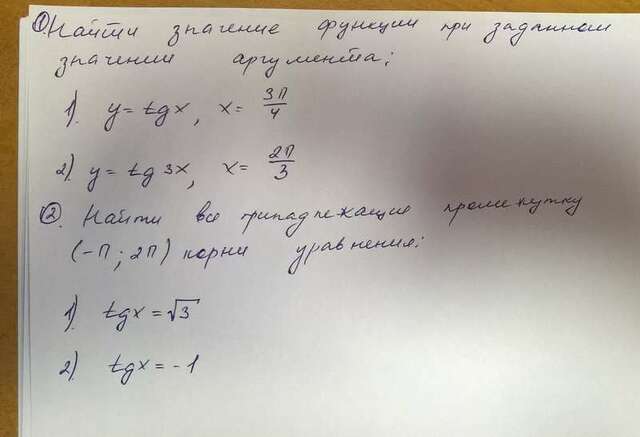 ① Найти значение функции при заданном
значении аргумента:
1). y = tg x, x = 3π/4
2). y = tg 3x, x = 2π/3
②. Найти все принадлежащие промежутку
(-π; 2π) корни уравнения:
1). tg x = √3
2). tg x = -1